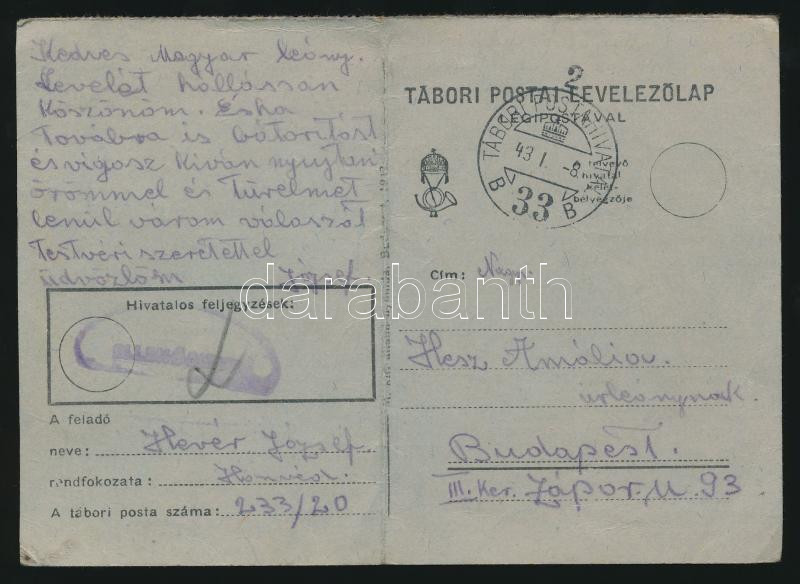 Kedves Magyar leány.
Levelét hállássan
Köszönöm. És ha
Továbra is bátorítást
és vigasz Kíván nyujteni
örömmel és Türelmet
lenül várom válaszát
Testvéri szeretettel
üdvözlöm József.
Hivatalos feljegyzések:
A feladó
neve: Hevér József
rendfokozata: Honvéd.
A tábori posta száma: 233/20
2
TÁBORI POSTAI LEVELEZŐLAP
LÉGIPOSTÁVAL
TÁBORI POSTAHIVATAL
43 I. -8.
B 33 B
hivatal
kelet-
bélyegzője
Cím: Nagys.
Hesz Amália.
úrleánynak.
Budapest.
III. Ker. Zápor u 93
darabanth